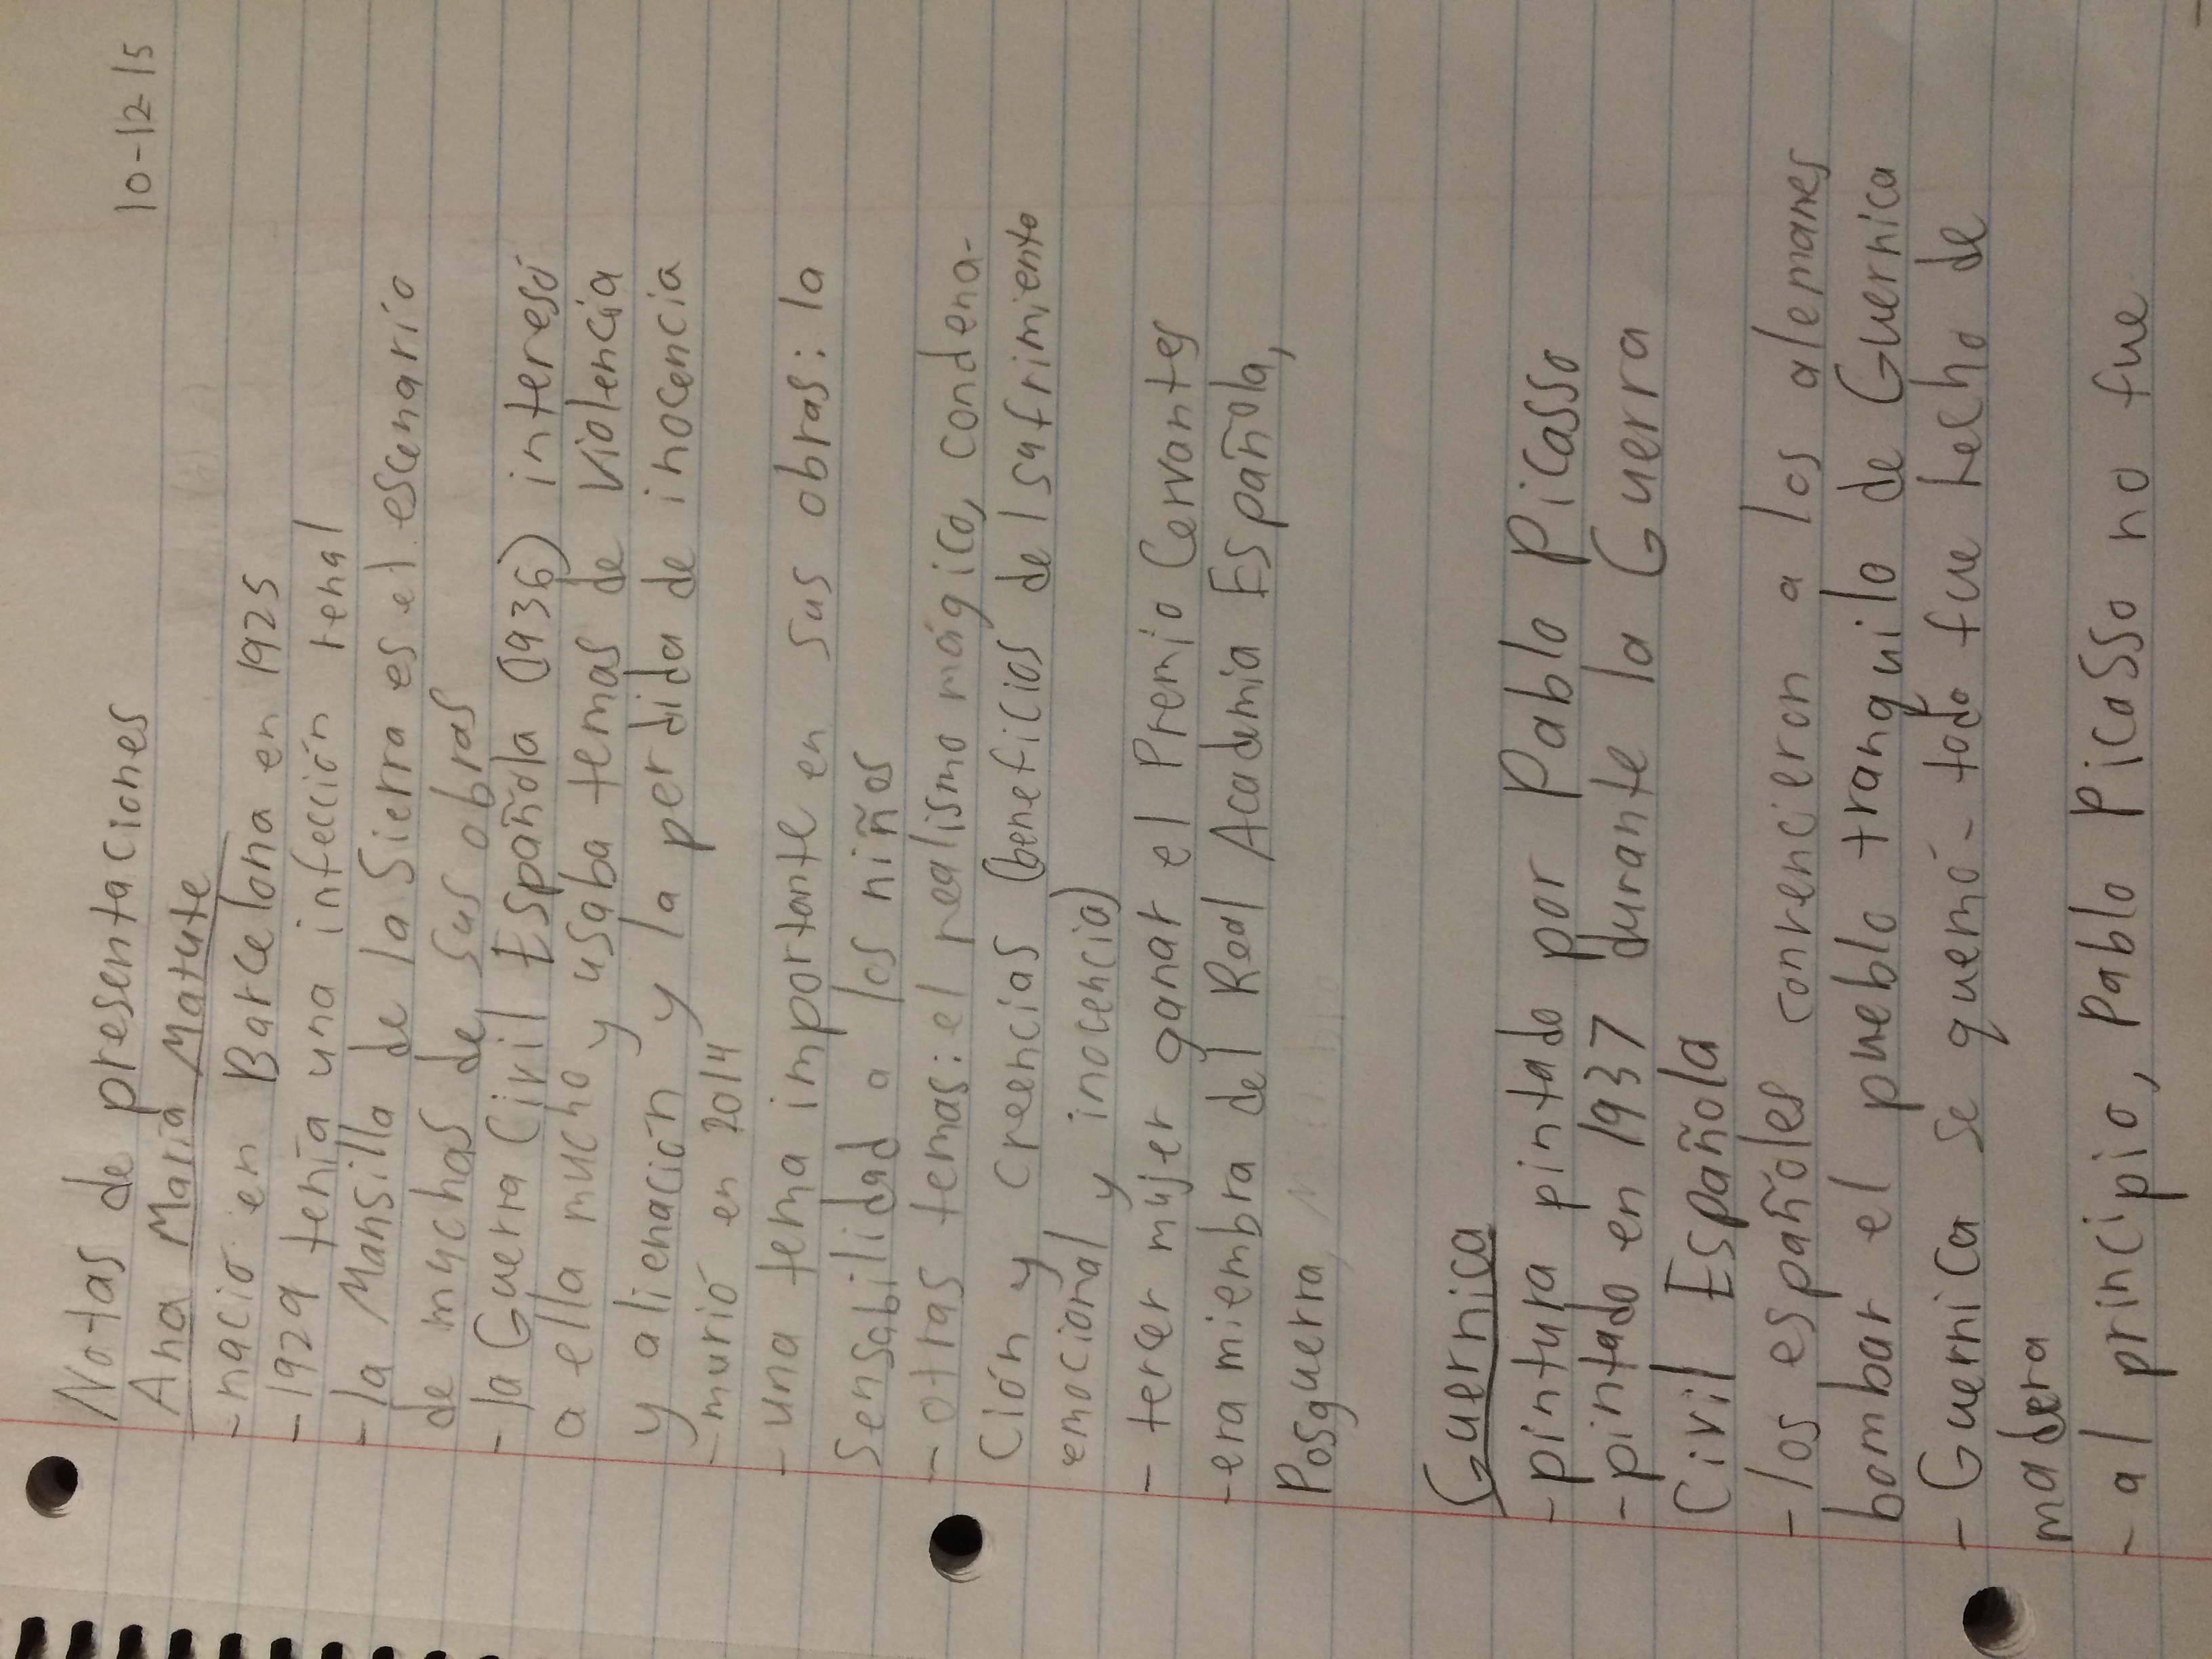 10-12-15
Notas de presentaciones
Ana María Matute
- nació en Barcelona en 1925
- 1929 tenía una infección renal
- la Mansilla de la Sierra es el escenario
de muchas de sus obras
- la Guerra Civil Española (1936) interesó
a ella mucho y usaba temas de violencia
y alienación y la perdida de inocencia
- murió en 2014
- una tema importante en sus obras: la
sensabilidad a los niños
- otras temas: el realismo mágico, condena-
ción y creencias (beneficios del sufrimiento
emocional y inocencia)
- tercer mujer ganar el Premio Cervantes
- era miembra del Real Academia Española,
Posguerra,
Guernica
- pintura pintado por Pablo Picasso
- pintado en 1937 durante la Guerra
Civil Española
- los españoles convencieron a los alemanes
bombar el pueblo tranquilo de Guernica
- Guernica se quemó - todo fue hecho de
madera
- al principio, Pablo Picasso no fue